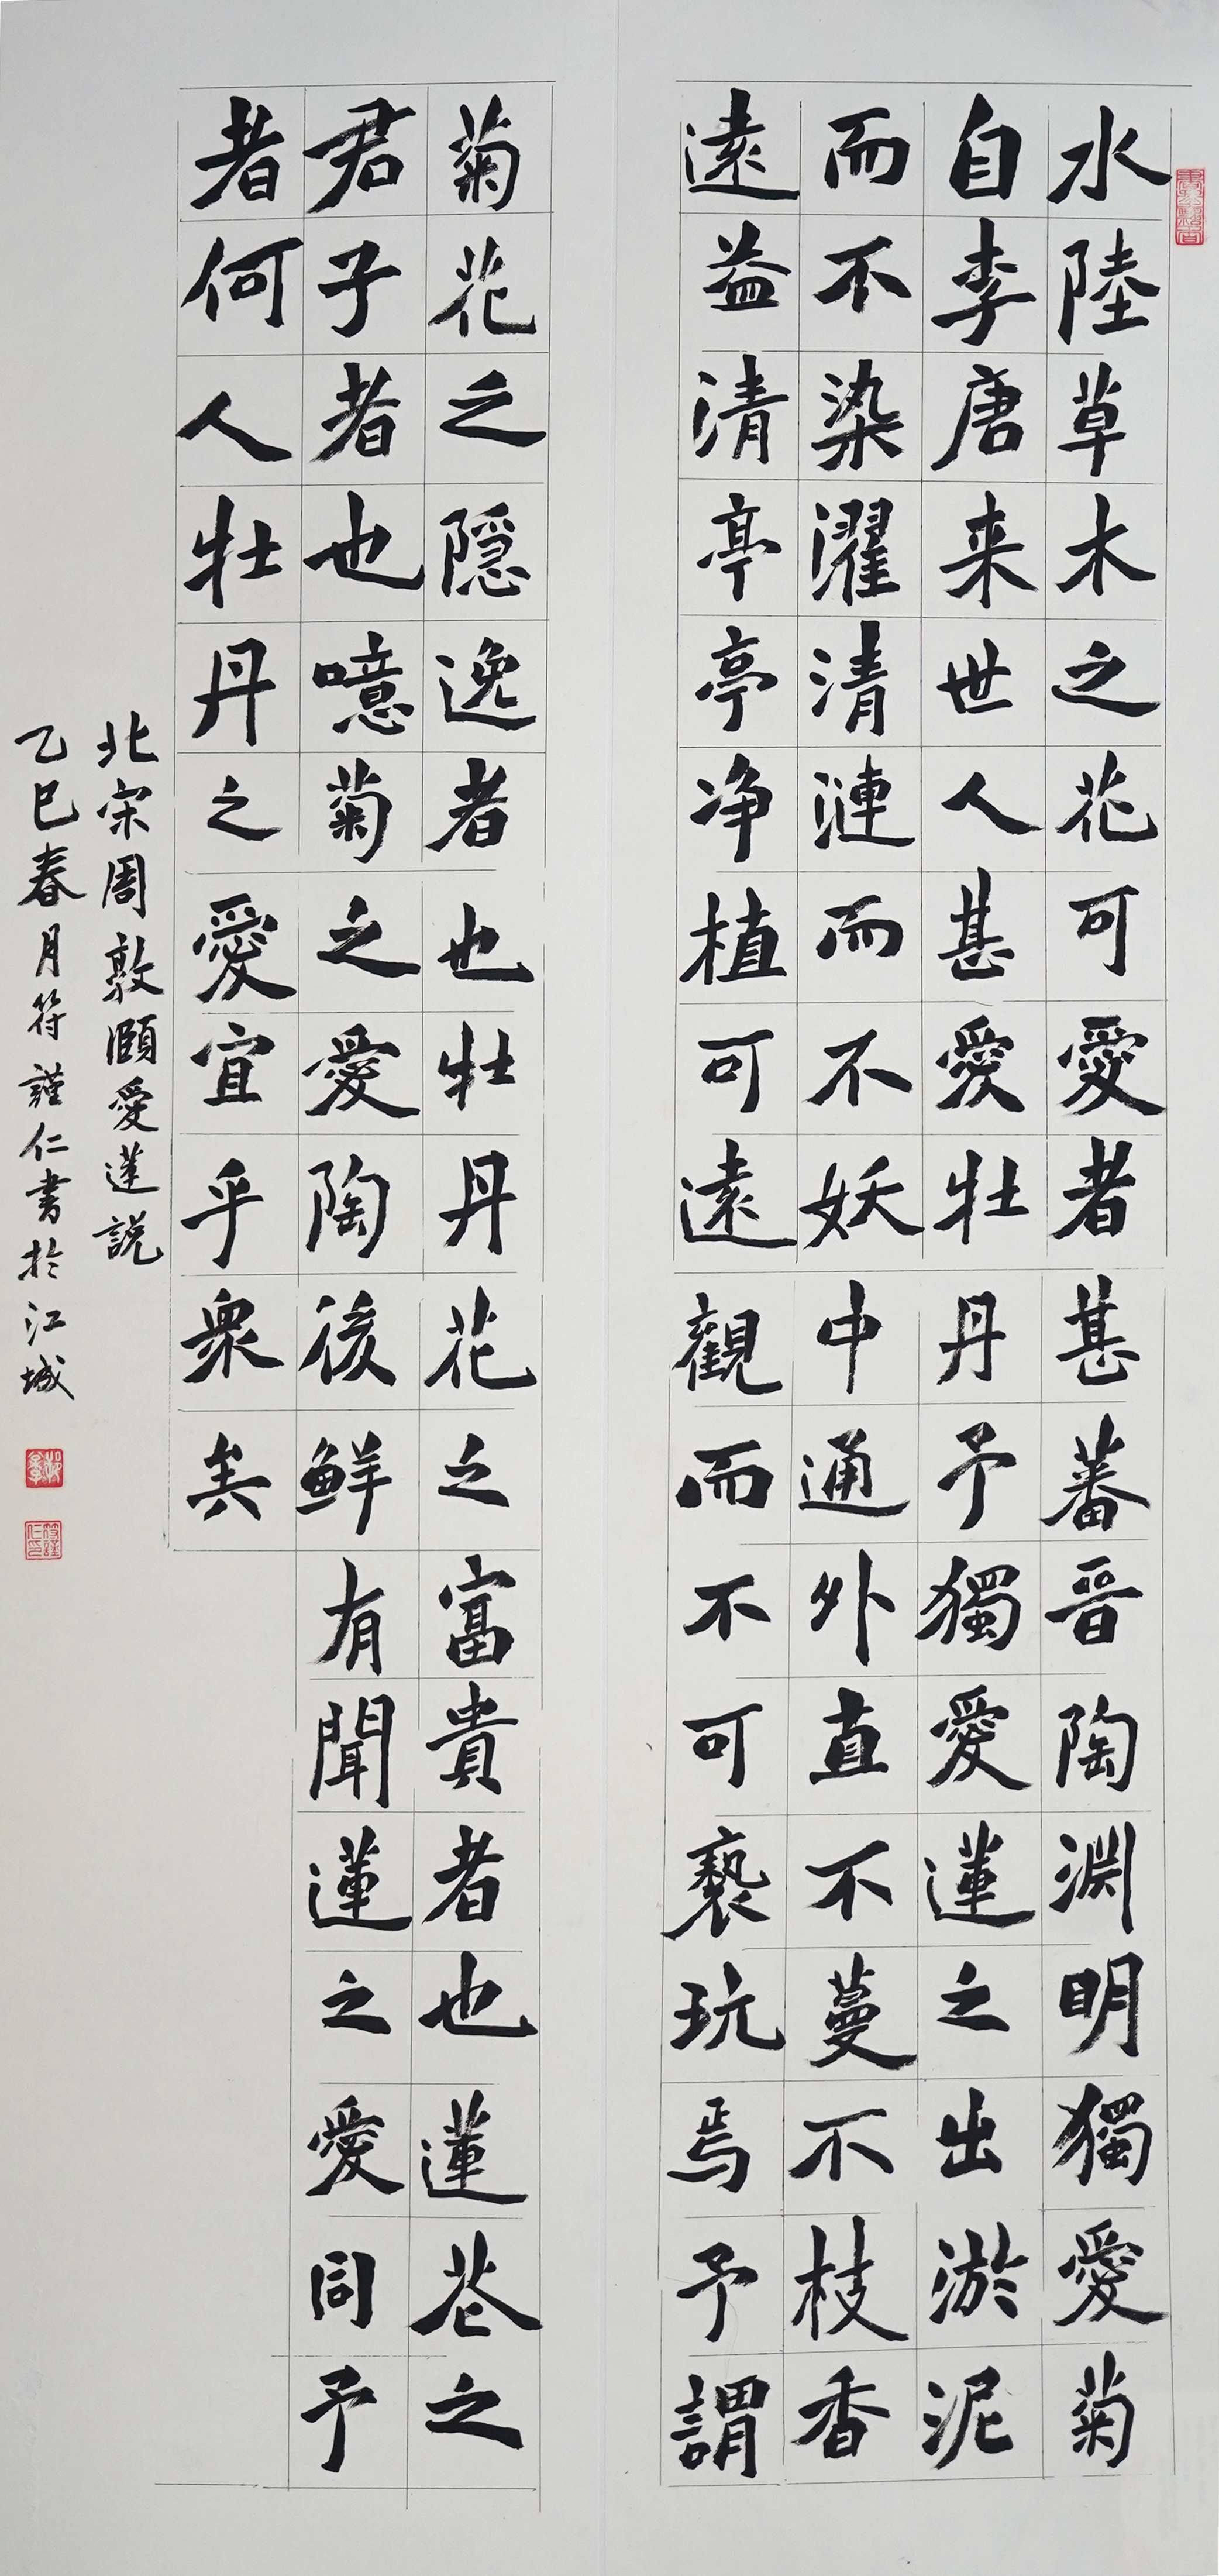 水陸草木之花可愛者甚蕃晋陶淵明獨愛菊
自李唐来世人甚愛牡丹予獨愛蓮之出淤泥
而不染濯清漣而不妖中通外直不蔓不枝香
遠益清亭亭净植可遠觀而不可褻玩焉予謂
菊花之隠逸者也牡丹花之富貴者也蓮花之
君子者也噫菊之愛陶後鮮有聞蓮之愛同予
者何人牡丹之愛宜乎衆矣
北宋周敦頤愛蓮説
乙巳春月符謹仁書於江城